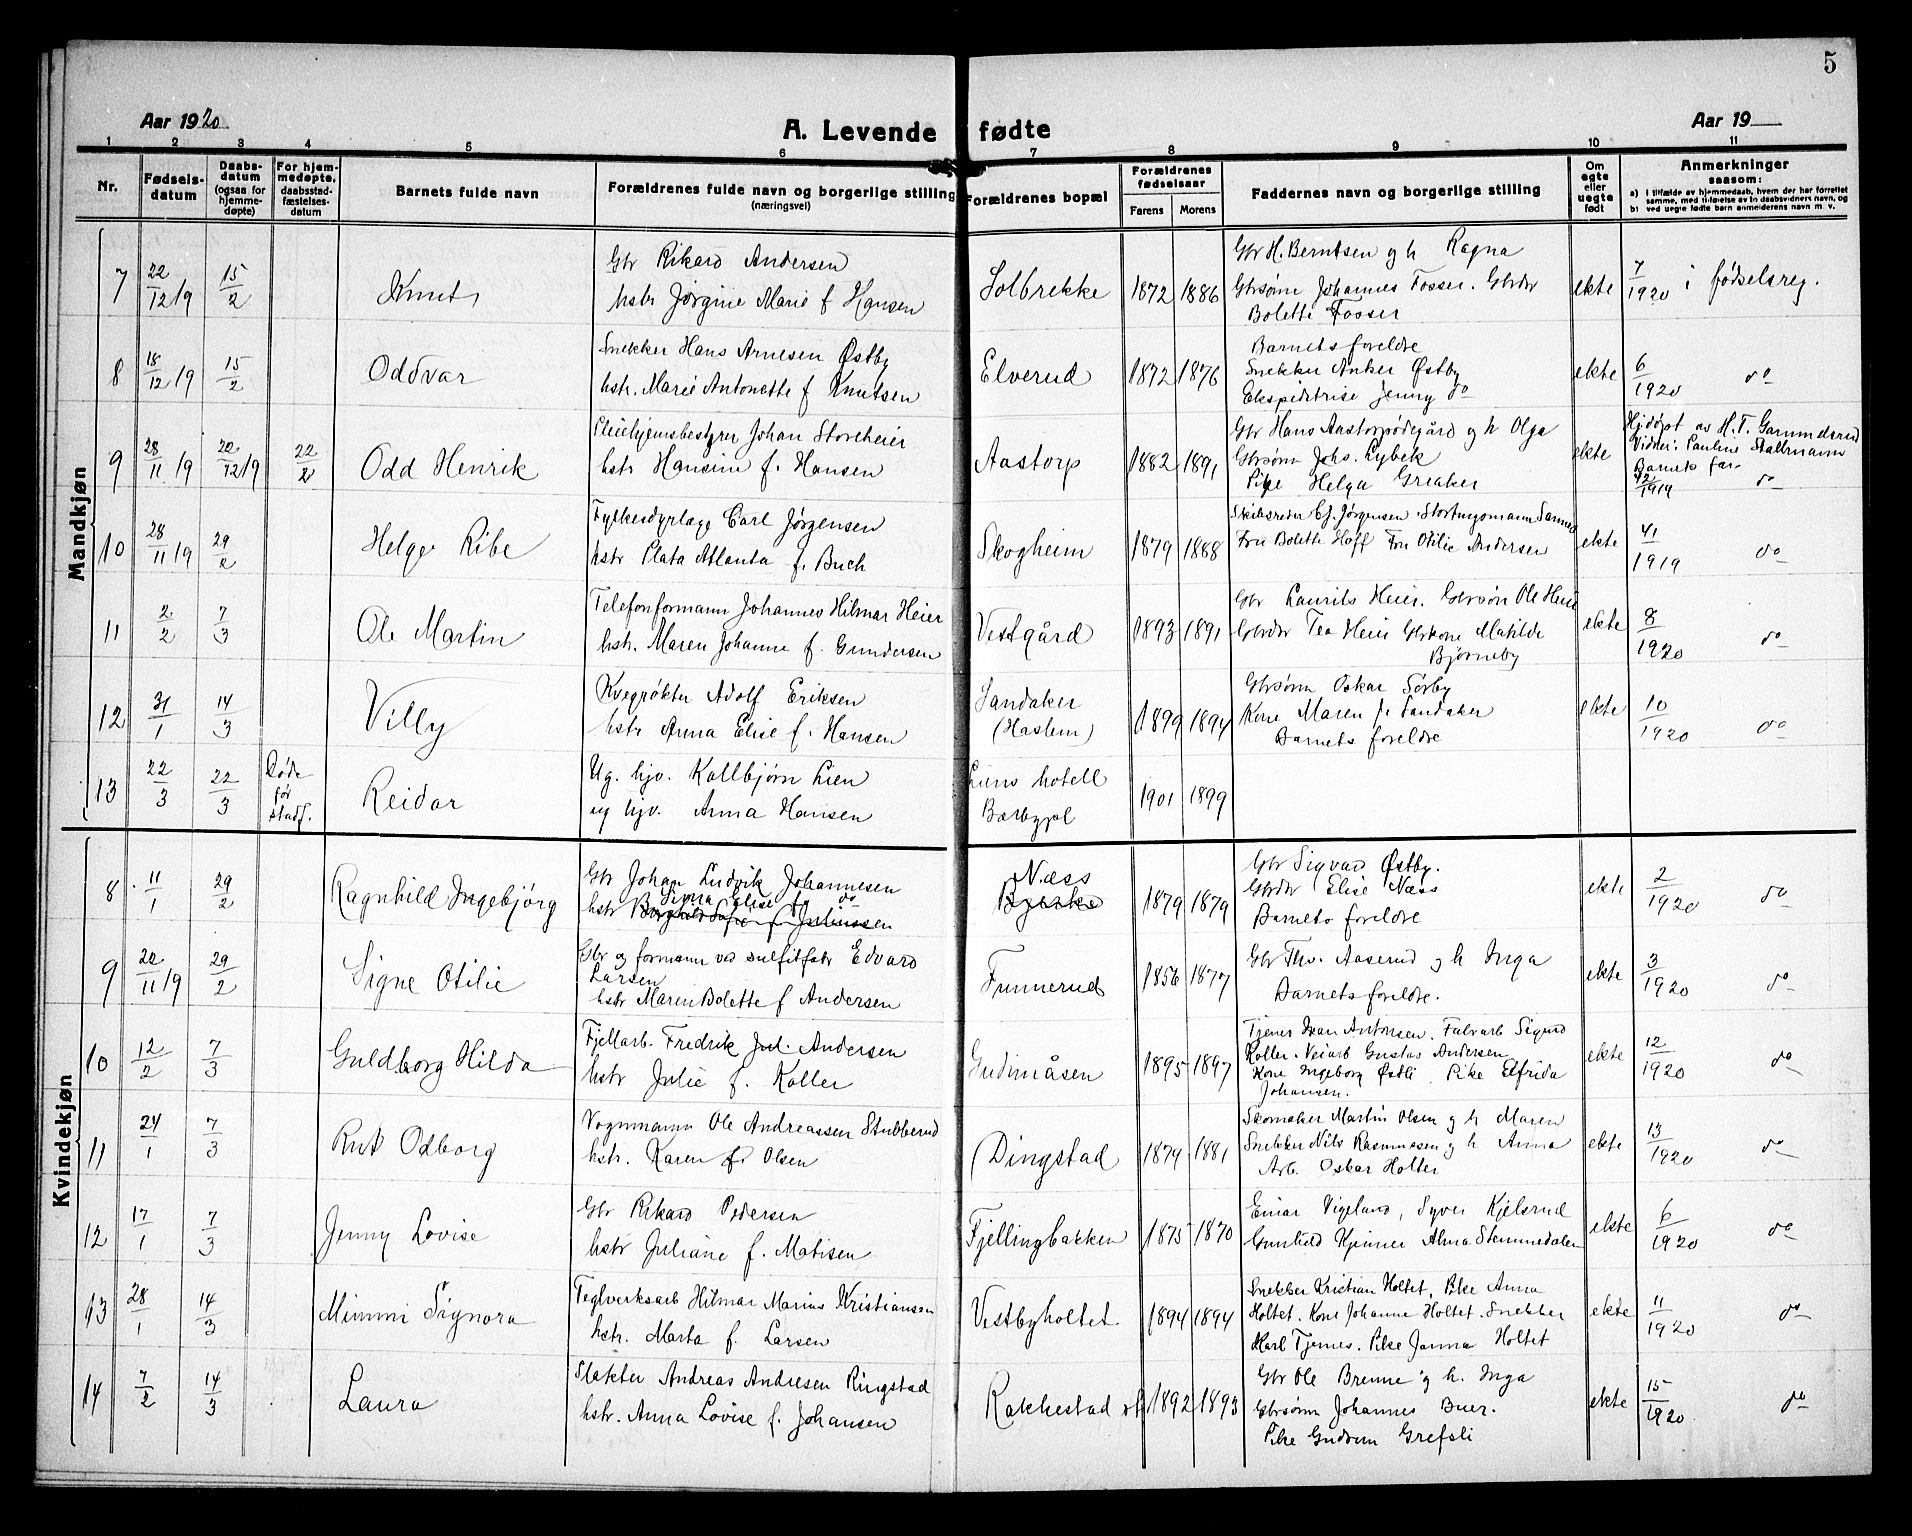 5
Aar 1920
A. Levende fødte
Aar 19
1 2 3 4 5 6 7 8 9 10 11
Nr.
Fødsels-
datum
Daabs-
datum
(ogsaa for
hjemme-
døpte)
For hjem-
medøpte,
daabsstad-
fæstelses-
datum
Barnets fulde navn
Forældrenes fulde navn og borgerlige stilling
(næringsvei)
Forældrenes bopæl
Forældrenes
fødselsaar
Farens Morens
Faddernes navn og borgerlige stilling
Om
ægte
eller
uegte
født
Anmerkninger
saasom:
a) i tilfælde av hjemmedaab, hvem der har forrettet
samme, med tilføielse av to daabsvidners navn, og
b) ved uegte fødte barn anmelderens navn m. v.
Mandkjøn
7 22/12 19 15/2 Knut
Gbr Rikard Andersen
hstr Jørgine Marie f Hansen
Solbrekke 1872 1886
Gbr H. Berntsen og h Ragna
Gbrsønn Johannes Fosser. Gbrdr
Bolette Fosser
ekte 7/1920 i fødselsreg.
8 18/12 19 15/2 Oddvar
Snekker Hans Arnesen Østby
hstr. Marie Antonette f Knutsen
Elverud 1872 1876
Barnets foreldre
Snekker Anker Østby
Ekspeditrise Jenny do
ekte 6/1920 do
9 28/11 19 20/12 19 22/2 Odd Henrik
Pleiehjemsbestyrer Johan Storeheier
hstr Hansine f. Hansen
Aastorp 1882 1891
Gbr Hans Aastorpødegård og h Olga
Gbrsønn Johs. Lybek
Pike Helga Greaker
ekte
Hjdøpt av H. T. Garmundsrud
Vidner: Pauline Stallmann
Barnets far
42/1919 do
10 28/11 19 29/2 Helge Ribe
Fylkesdyrlæge Carl Jørgensen
hstr Plata Atlanta f. Buch
Skogheim 1879 1888
Skibsreder Chr. Jørgensen. Stortingsmann Sannes
Fru Bolette Hoff Fru Otilie Andersen
ekte 41/1919 do
11 2/2 7/3 Ole Martin
Telefonformann Johannes Hilmar Heier
hstr. Maren Johanne f. Gundersen
Vestgård 1893 1891
Gbr Laurits Heier. Gbrsønn Ole Heier
Gbrdr Tea Heier Gbrkone Matilde
Bjørneby
ekte 8/1920 do
12 31/1 14/3 Villy
Kvegrøkter Adolf Eriksen
hstr Anna Elise f. Hansen
Sandaker
(Haslem)
1899 1894
Gbrsønn Oskar Sørby
Kone Maren Sandaker
Barnets foreldre
ekte 10/1920 do
13 22/3 22/3
Døde
før
stadf.
Reidar
Ug. hjv. Kollbjørn Lien
ug hjv. Anna Hansen
Liens hotell
1901 1899
Kvindekjøn
8 11/1 29/2 Ragnhild Ingebjørg
Gbr Johan Ludvik Johannesen
Signa Elise f. do
hstr Borghild Sofie f Juliussen
Næss
Bjerke
1879 1879
Gbr Sigvard Østby.
Gbrdr Elise Næss
Barnets foreldre
ekte 2/1920 do
9 22/11 19 29/2 Signe Otilie
Gbr og formann ved sulfitfabr Edvard
Larsen
hstr Maren Bolette f Andersen
Funnerud 1856 1877
Gbr Thv. Aaserud og h Inga
Barnets foreldre.
ekte 3/1920 do
10 12/2 7/3 Guldborg Hilda
Fjellarb. Fredrik Jul. Andersen
hstr Julie f. Koller
Gudimåsen 1895 1897
Tjener Ivan Antonsen. Falvarb Sigurd
Koller. Veiarb Gustav Andersen
Kone Ingeborg Østli. Pike Elfrida
Johansen.
ekte 12/1920 do
11 24/1 7/3 Rut Odborg
Vognmann Ole Andreassen Stubberud
hstr. Karen f. Olsen
Dingstad 1879 1881
Skomaker Martin Olsen og h Maren
Snekker Nils Rasmussen og h Anna
Arb. Oskar Holter
ekte 13/1920 do
12 17/1 7/3 Jenny Lovise
Gbr Rikard Pedersen
hstr Juliane f. Matisen
Fjellingbakken 1875 1870
Einar Vigeland, Syver Kjelsrud
Gunhild Kjinner Alma Stemmedalen
ekte 6/1920 do
13 28/1 14/3 Mimmi Signora
Teglverksarb Hilmar Marius Kristiansen
hstr. Marta f. Larsen
Vestbyholtet 1894 1894
Snekker Kristian Holtet, Pike Anna
Holtet. Kone Johanne Holtet. Snekker
Karl Tjernes. Pike Janna Holtet
ekte 11/1920 do
14 7/2 14/3 Laura
Slakter Andreas Andresen Ringstad
hstr. Anna Lovise f. Johansen
Rakkestad st 1892 1893
Gbr Ole Brenne og h. Inga
Gbrsønn Johannes Buer.
Pike Gudrun Grefsli
ekte 15/1920 do